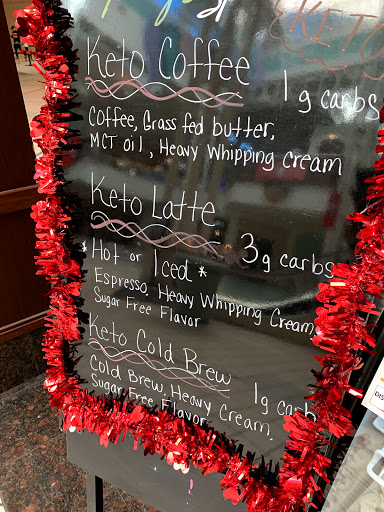 KETO
Keto Coffee 1g carbs
Coffee, Grass fed butter,
MCT oil, Heavy Whipping Cream
Keto Latte 3g carbs
*Hot or Iced*
Espresso, Heavy Whipping Cream
Sugar Free Flavor
Keto Cold Brew 1g carb
Cold Brew, Heavy Cream,
Sugar Free Flavor